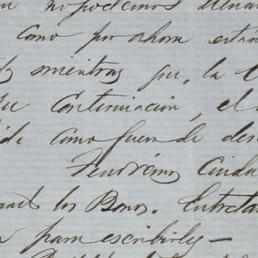 no podemos
como por ahora están
mientras que, la
su continuación, el
como fuera de des
Tendrémos Cuida
los Bonos. Entreta
para escribirles —